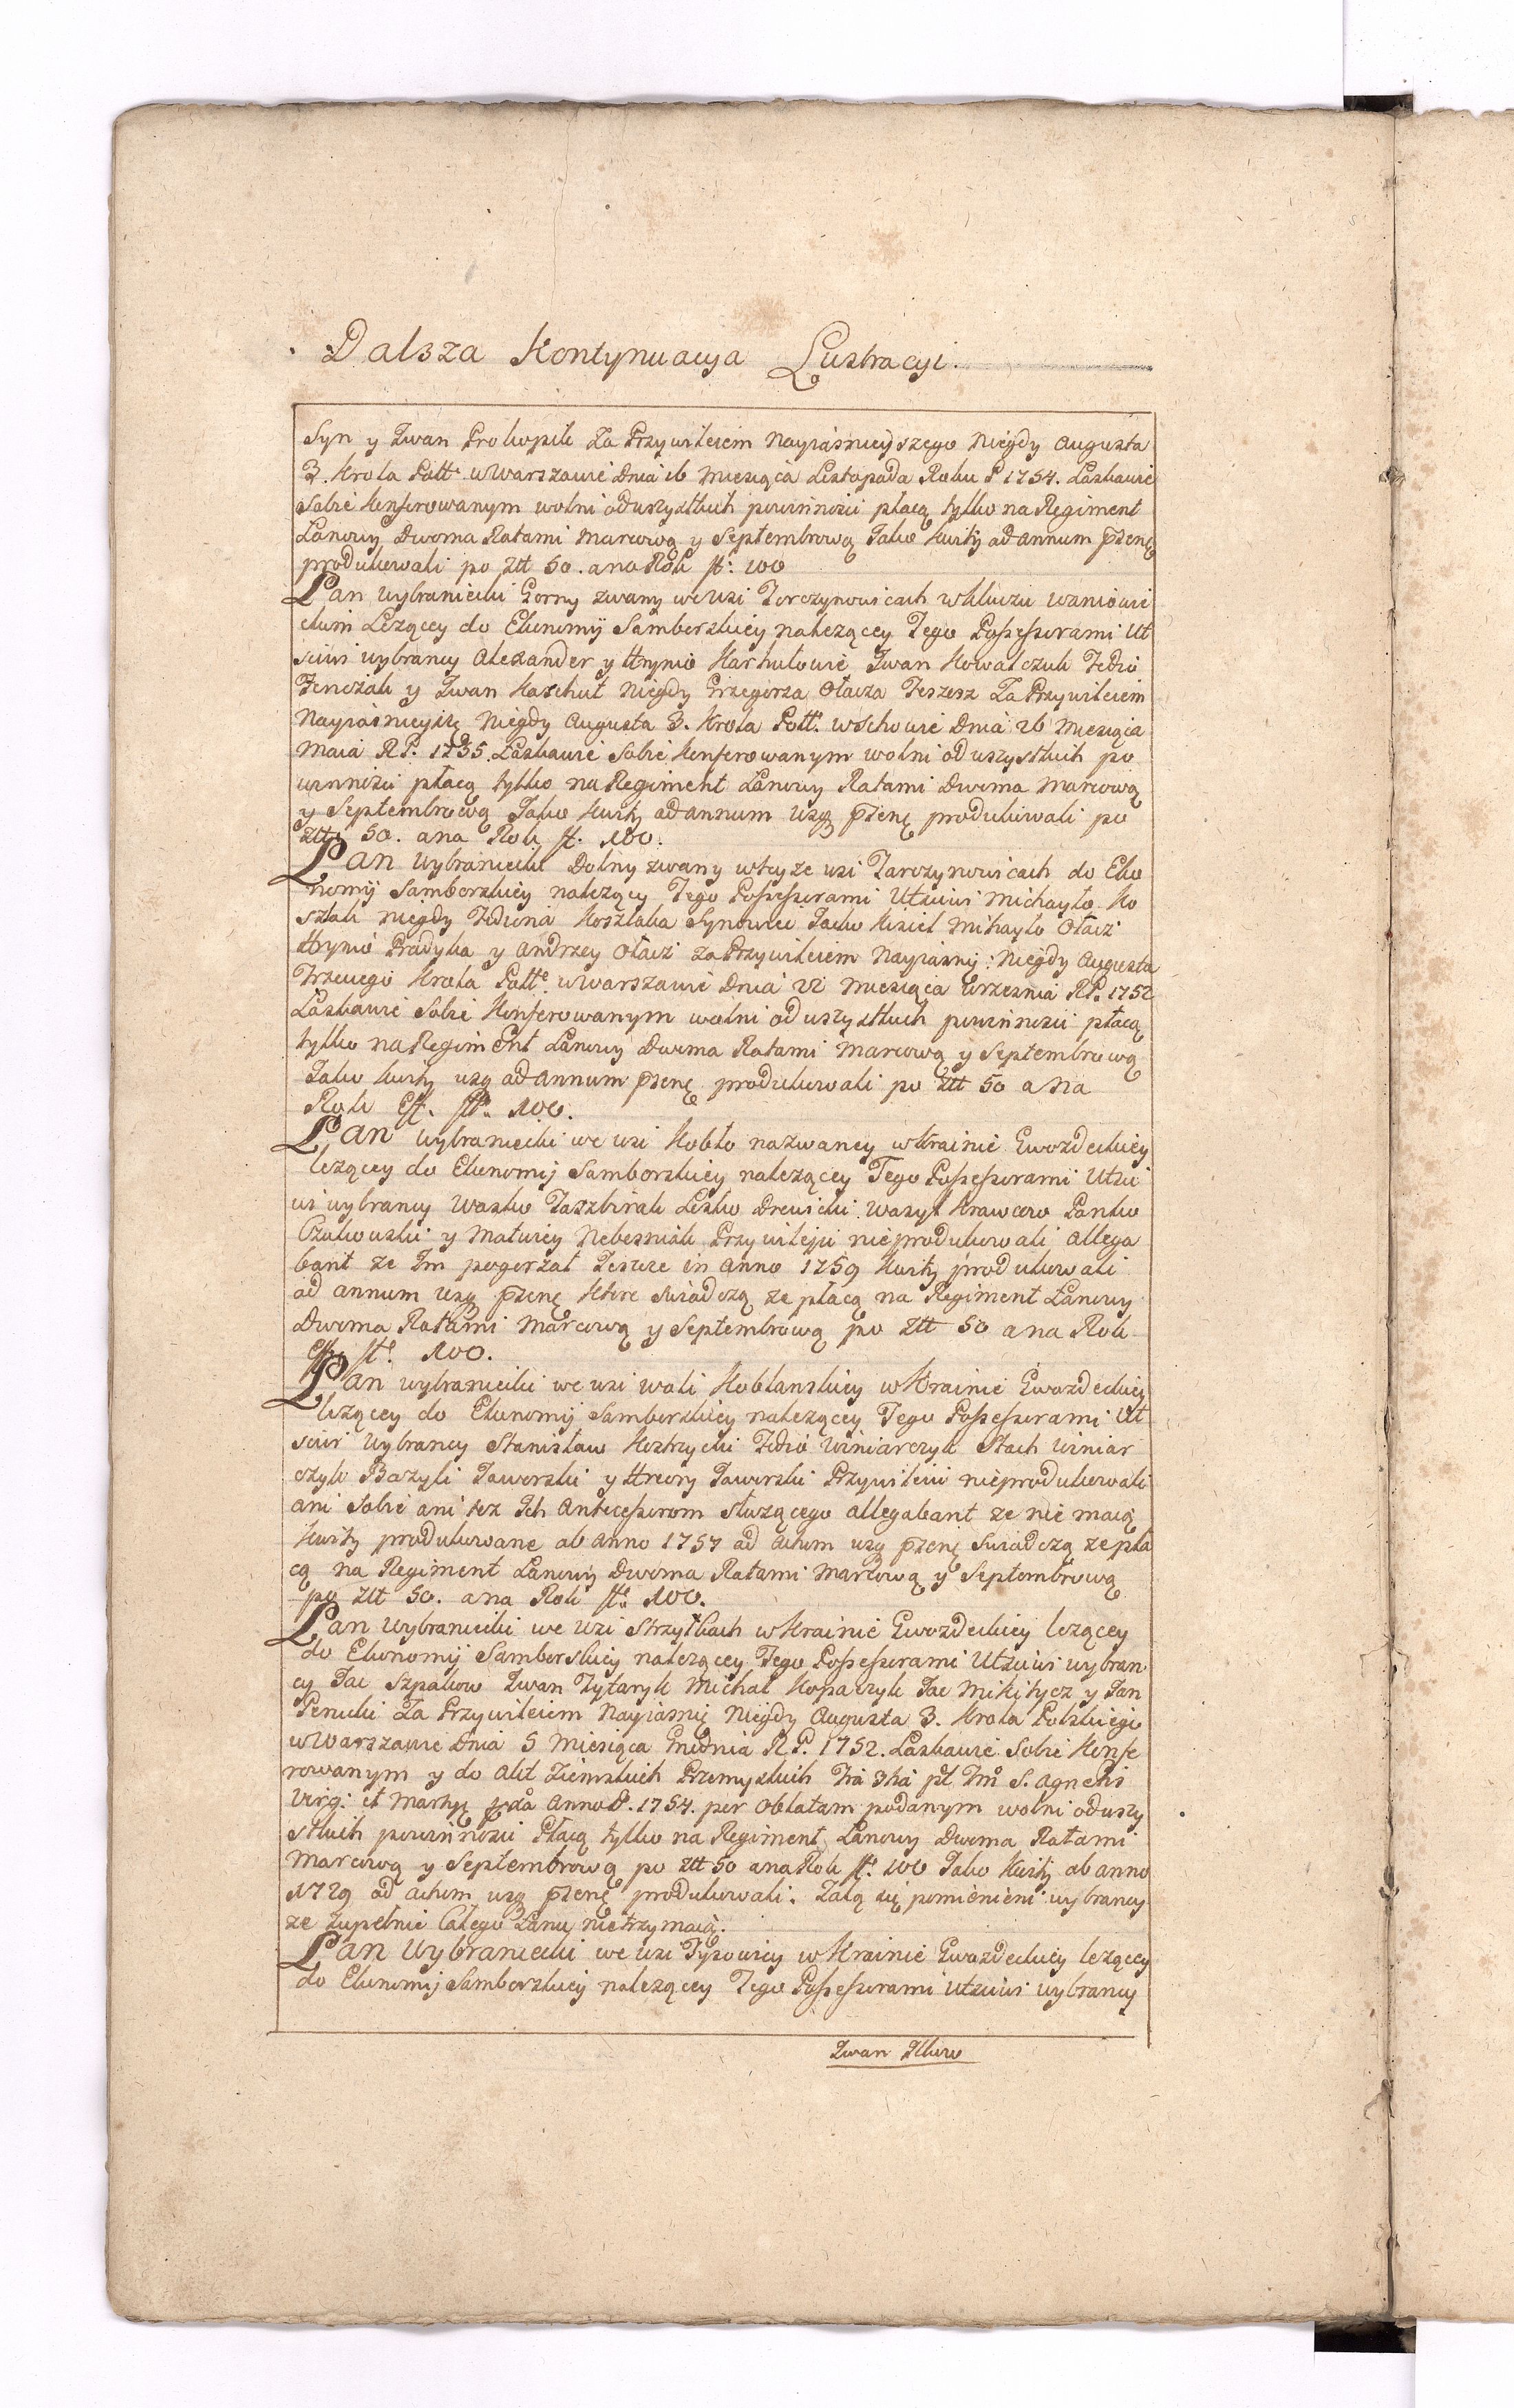 Dalsza Kontynuacya Lustracyi.
Syn y Iwan Prokopik Za Przywileiem Nayiasnieyszego Niegdy Augusta
3. Krola Poltt. w Warszawie Dnia 16 Miesiąca Listopada Roku P 1754. Laskawie
Sobie Konferowanym wolni od wszystkich powinnosci płacą tylko na Regiment
Lanowy Dwoma Ratami Marcową y Septembrową Jako Kwity ad annum pzenę
produkowali po Ztt 50. a na Rok ft: 100
Łan Wybraniecki Gorny zwany we wsi Torczynowicach w Kluczu Waniowi
ckim Lezącey do Ekonomij Samborskiey nalezącey Tego Possessorami Ut
sciwi wybrancy Alexander y Hrynio Karhutowie Iwan Kowalczuk Fedio
Fenczak y Iwan Karchut Niegdy Grzegorza Otacza Teszesz Za Przywileiem
Nayiasnieyszę Niegdy Augusta 3. Krola Poltt. w Schowie Dnia 26 Miesiąca
Maia R P. 1735. Laskawie Sobie Konferowanym wolni od wszystkich po
winnosci płacą tylko na Regiment Lanowy Ratami Dwoma Marcową
y Septembrową Jako Kwity ad annum usq pzenę produkowali po
Ztt 50. a na Rok ft. 100.
Łan Wybraniecki Dolny zwany w teyze wsi Tarczynowicach do Eko
nomij Samborskiey nalezący Tego Possessorami Utsciwi Michayło Ko
sztak niegdy Fediona Kosztaka Synowiec Jacko Kisiel Mihayło Otacz
Hrynio Pradyka y Andrzey Otacz za Przywileiem Nayiasniy: Niegdy Augusta
Trzeciego Krola Poltt. w Warszawie Dnia 22 Miesiąca Wrzesnia R P. 1752
Laskawie Sobie Konferowanym wolni od wszystkich powinnosci płacą
tylko na Regiment Lanowy Dwoma Ratami Marcową y Septembrową
Jako Kwity usq ad annum pzenę produkowali po Ztt 50 a na
Rok Eff. ft. 100.
Łan wybraniecki we wsi Kobło nazwaney w Krainie Gwozdeckiey
lezącey do Ekonomij Samborskiey nalezącey Tego Possessorami Utsci
wi wybrancy Wasko Zaszbirak Lesko Drewicki Wasyl Krawcow Panko
Czukowski y Matwiey Nebesniak Przywileju nie produkowali allega
bant ze Im pogorzał Jeszcze in Anno 1759 Kwity produkowali
ad annum usq pzenę Ktore swiadczą ze płacą na Regiment Łanowy
Dwoma Ratami Marcową y Septembrową po Ztt 50 a na Rok
eff. ft. 100.
Łan wybraniecki we wsi Woli Koblanskiey w Krainie Gwozdeckiey
lezącey do Ekonomij Samborskiey nalezącey Tego Possessorami Ut
sciwi Wybrancy Stanisław Kostrzycki Fedio Winiarczyk Stach Winiar
czyk Bazyli Jaworski y Hreory Jaworski Przywileiu nie produkowali
ani Sobie ani tez Ich Antecessorom słuzącego allegabant ze nie maią
Kwity produkowane ab Anno 1757 ad actum usq pzenę Swiadczą ze pła
cą na Regiment Lanowy Dwoma Ratami Marcową y Septembrową
po Ztt 50. a na Rok ft. 100.
Łan Wybraniecki we Wsi Strzyłkach w Krainie Gwozdeckiey lezącey
do Ekonomij Samborskiey nalezącey Tego Possessorami Utsciwi wybran
cy Jac Szpakow Iwan Zytaryk Michał Kopaczyk Jac Mikitycz y Jan
Penicki Za Przywileiem Nayiasnię Niegdy Augusta 3. Krola Polskiego
w Warszawie Dnia 5 Miesiąca Grudnia R P. 1752. Laskawie Sobie Konfe
rowanym y do Akt Ziemskich Przemyskich Fra 3ha pt Fm S. Agnetis
Virg: et Marty Anno D. 1754. per Oblatam podanym wolni od wszy
stkich powinnosci Płacą tylko na Regiment Lanowy Dwoma Ratami
Marcową y Septembrową po Ztt 50 a na Rok ft. 100 Jako Kwity ab anno
1729 ad actum usq pzenę produkowali. Zalą się pomienieni wybrancy
ze zupełnie Całego Łanu nie trzymaią.
Łan Wybraniecki we wsi Tysowicy w Krainie Gwozdeckiey lezącey
do Ekonomij Samborskiey nalezącey Tego Possessorami Utsciwi wybrancy
Iwan Ilkow